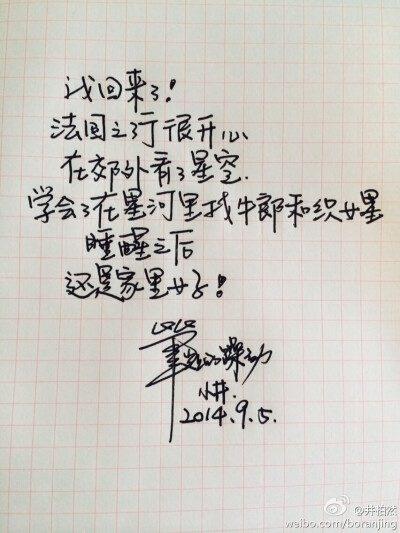 我回来了!
法国之行很开心
在郊外看了星空.
学会了在星河里找牛郎和织女星
睡醒之后
还是家里好!
的躁动
小井.
2014.9.5.
@井柏然
weibo.com/boranjing